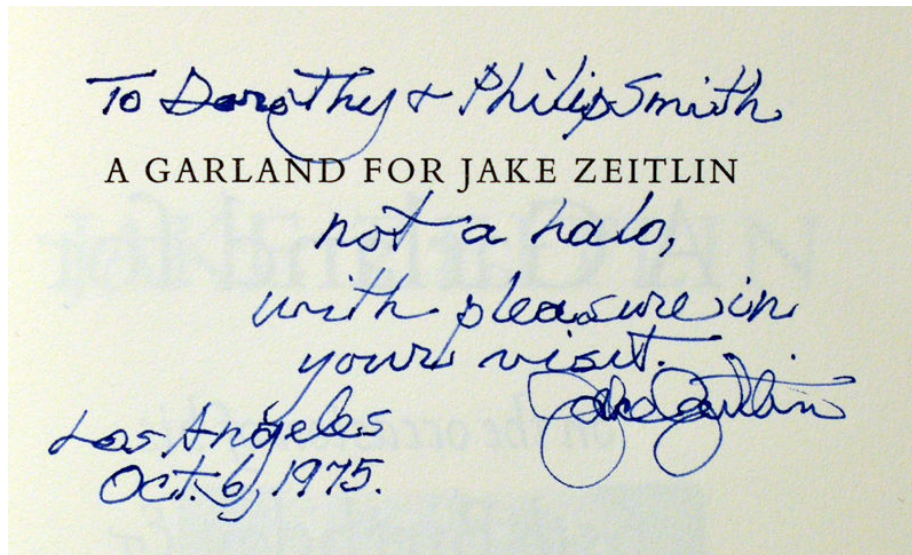 To Dorothy & Philip Smith
A GARLAND FOR JAKE ZEITLIN
not a halo,
with pleasure in
your visit.
Jake Zeitlin
Los Angeles
Oct. 6, 1975.